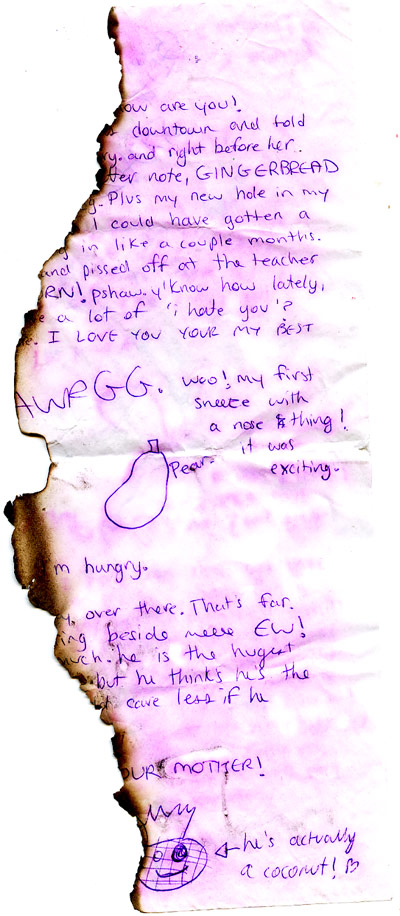 ow are you!
downtown and told
ry. and right before her.
ter note, GINGERBREAD
g. Plus my new hole in my
I could have gotten a
g in like a couple months.
and pissed off at the teacher
RN! pshaw. y'know how lately,
e a lot of 'i hate you'?
e. I LOVE YOU YOUR MY BEST
AWRGG. woo! my first
sneeze with
a nose thing!
it was
Pear. exciting.
m hungry.
y, over there. That's far.
ing beside meee EW!
uch. he is the hugest
but he thinks he's the
care less if he
OUR MOTHER!
he's actually
a coconut!